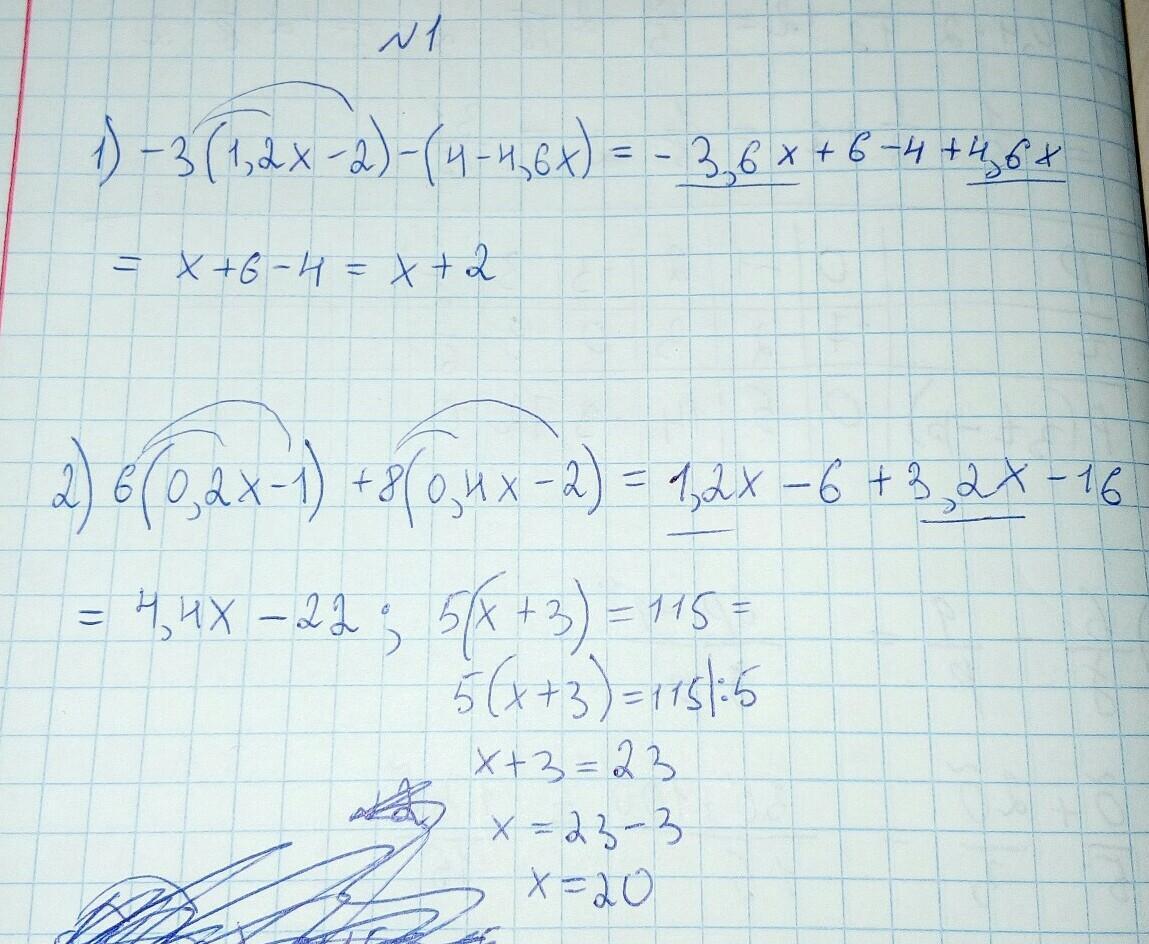 N1
1) -3(1,2x-2)-(4-4,6x) = -3,6x+6-4+4,6x
= x+6-4 = x+2
2) 6(0,2x-1) +8(0,4x-2) = 1,2x-6+3,2x-16
= 4,4x-22; 5(x+3)=115=
5(x+3)=115|:5
x+3=23
x=23-3
x=20